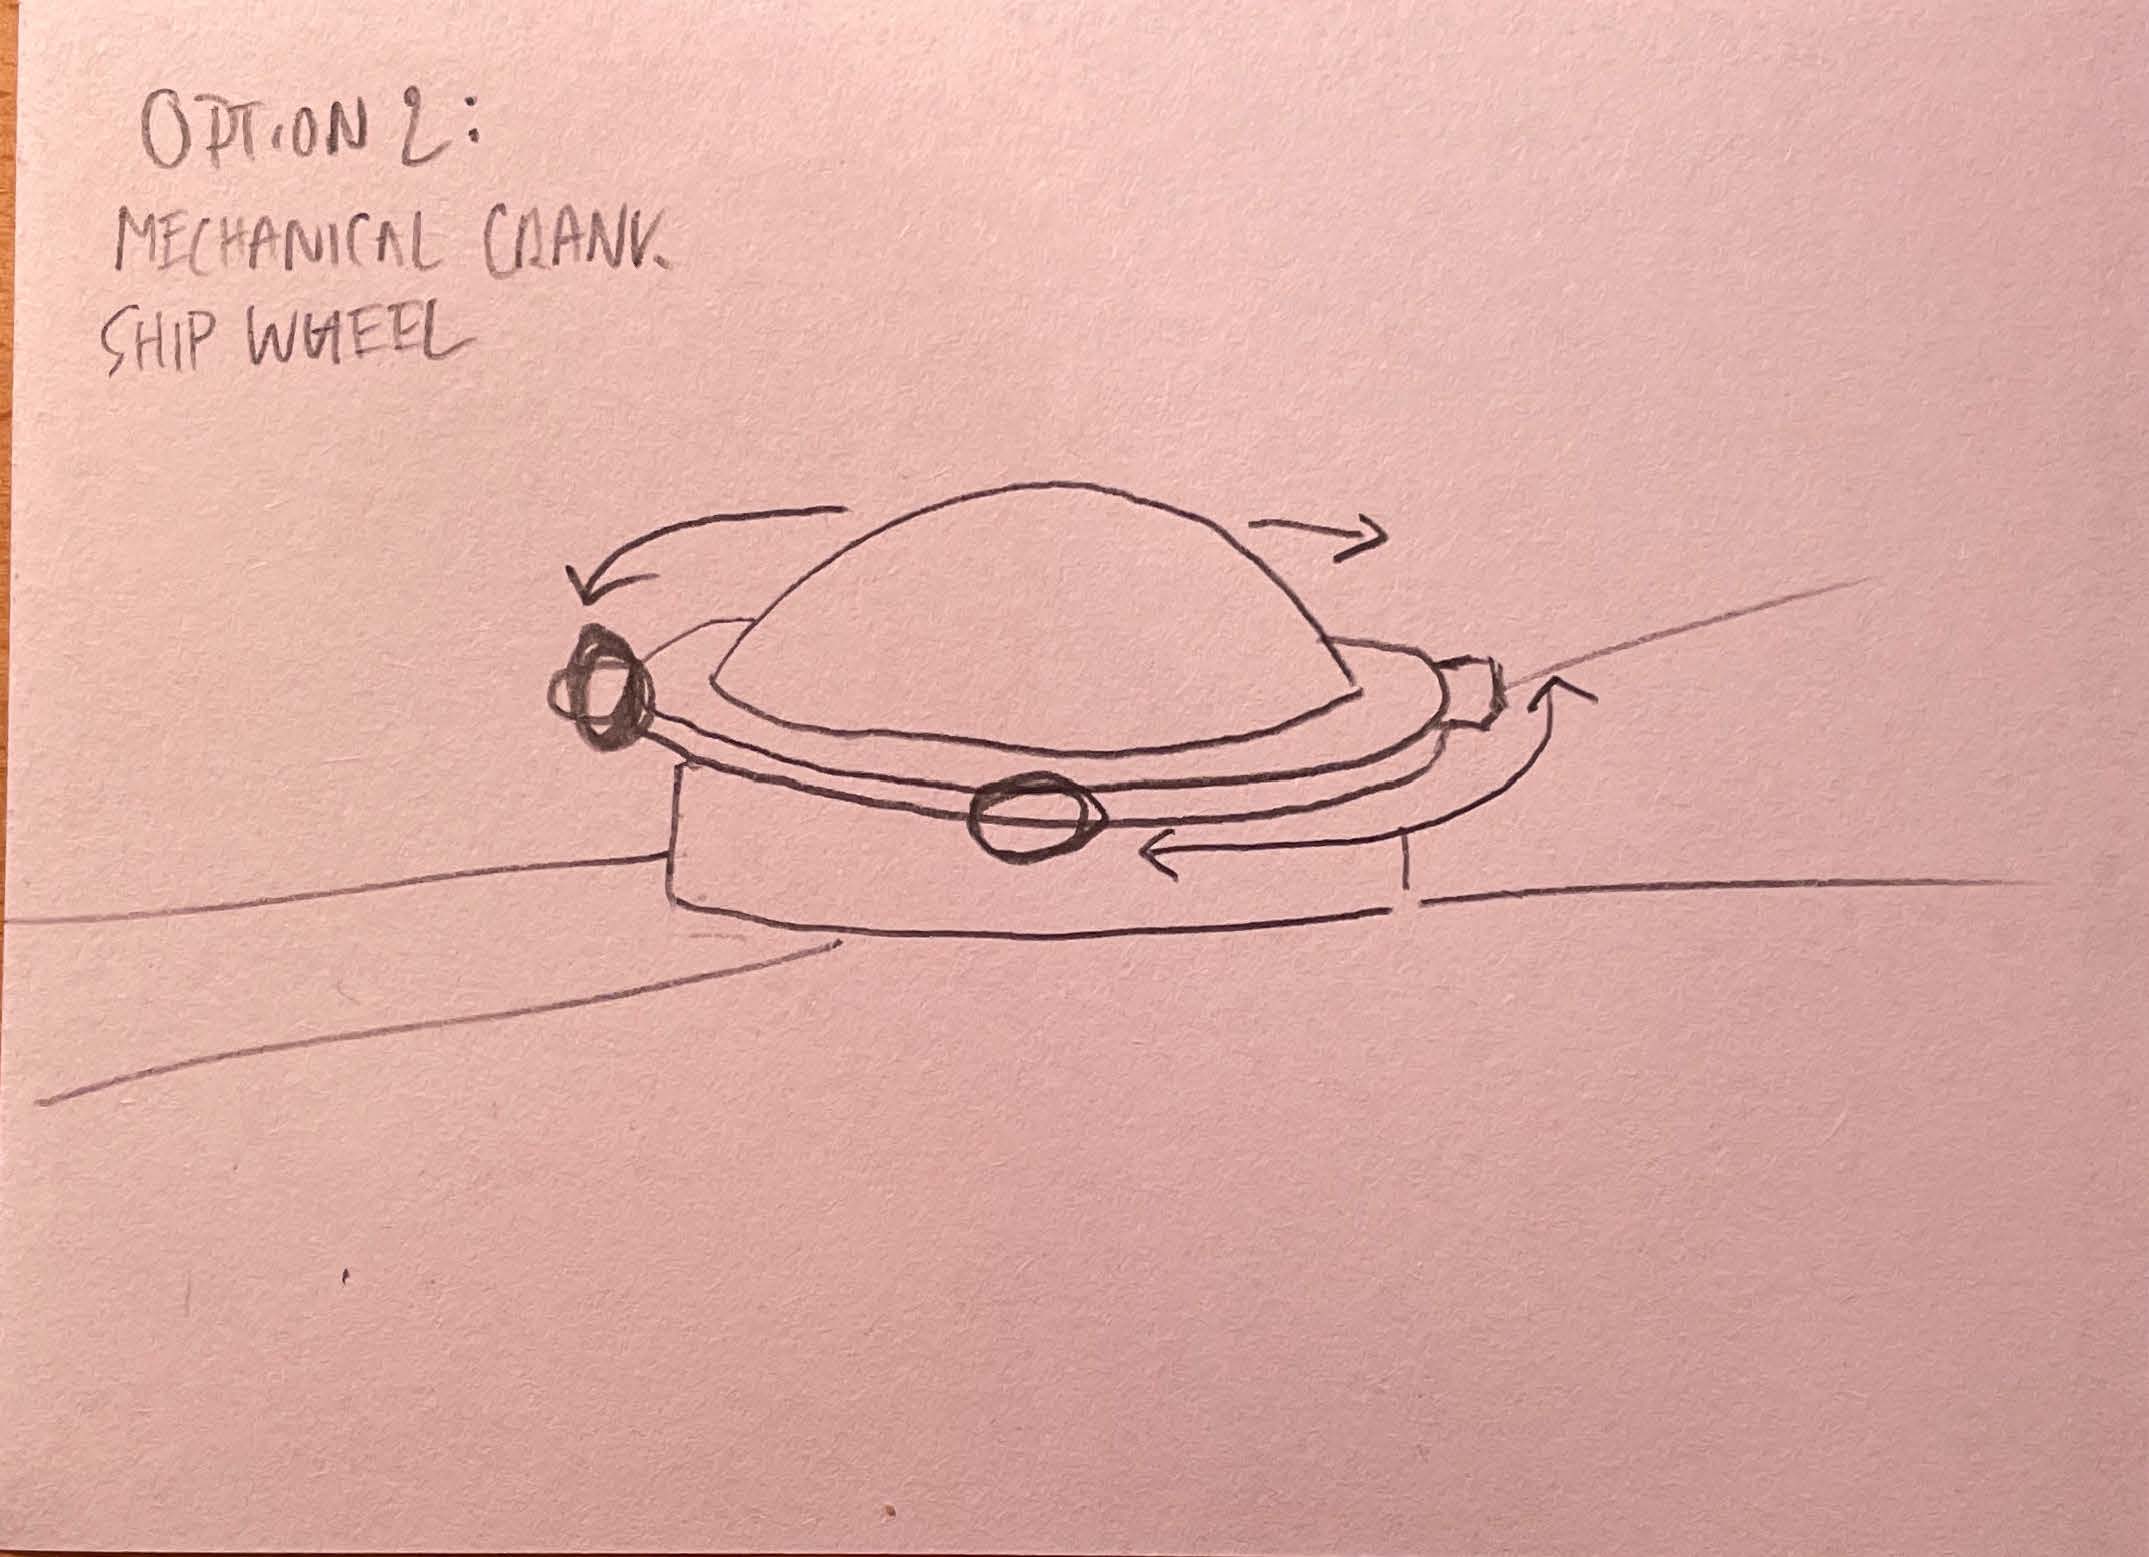 OPTION 2:
MECHANICAL CRANK.
SHIP WHEEL